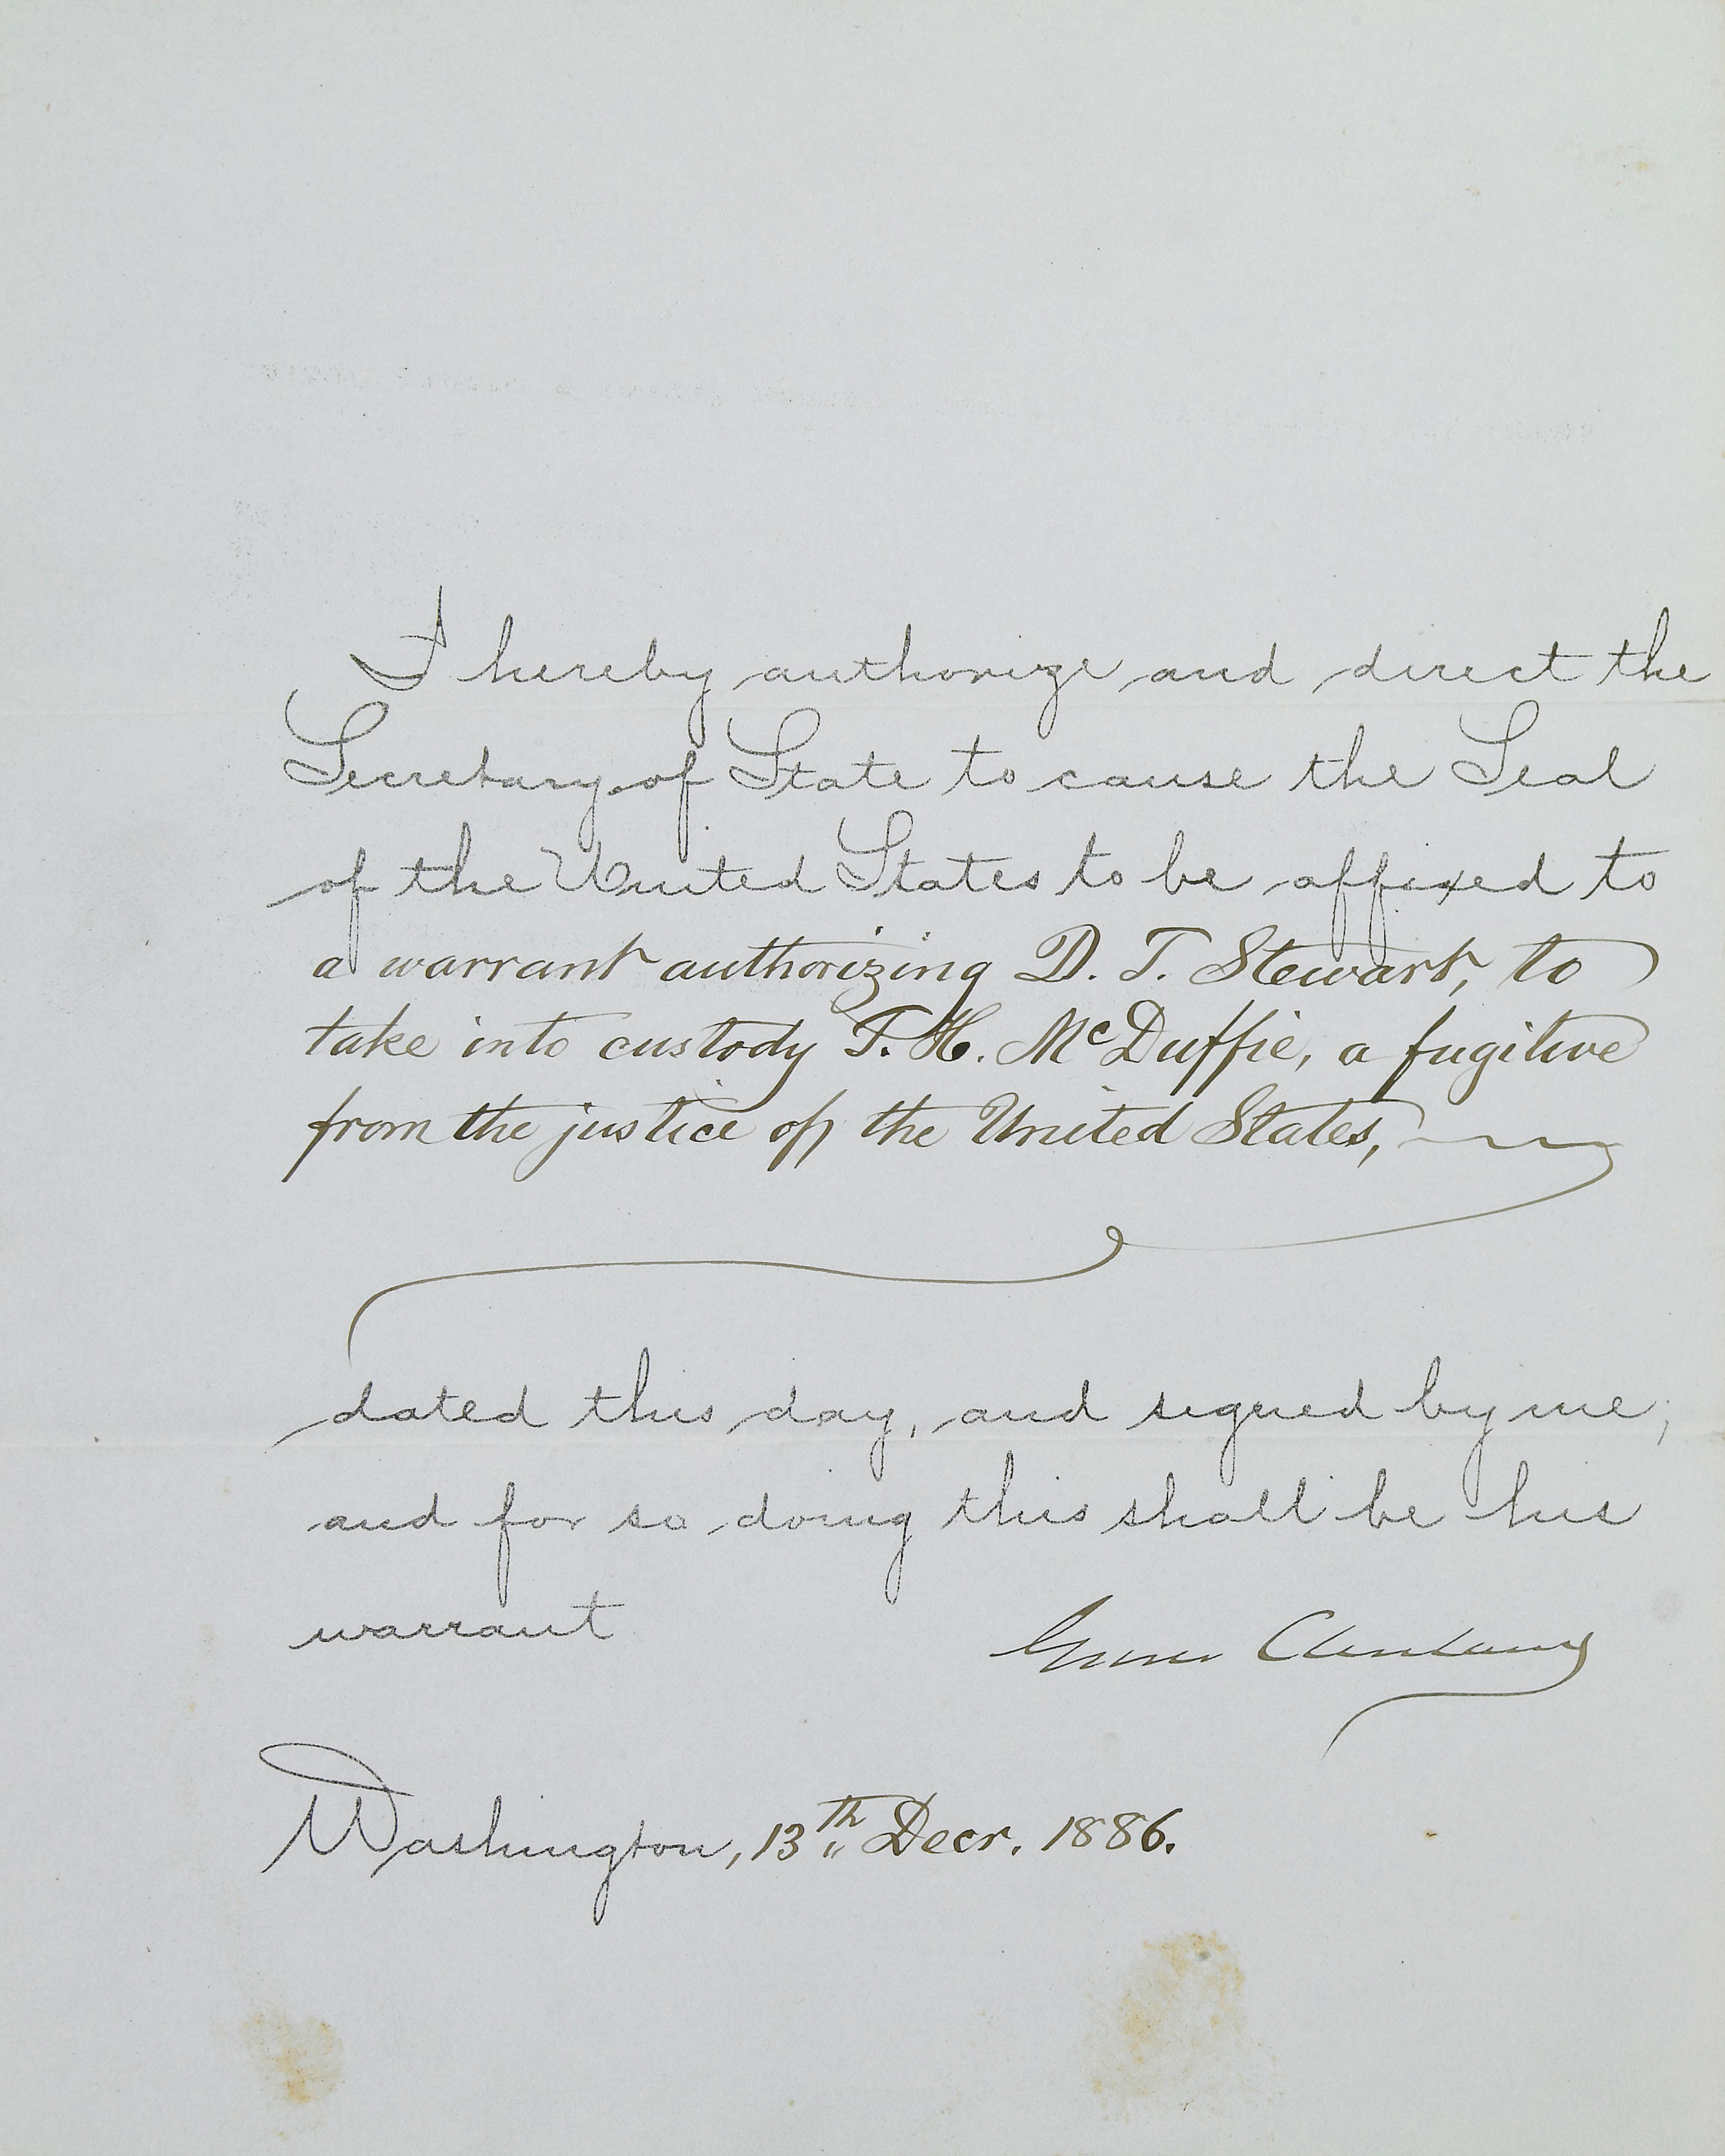 I hereby authorize and direct the
Secretary of State to cause the Seal
of the United States to be affixed to
a warrant authorizing D. T. Stewart, to
take into custody T. H. McDuffie, a fugitive
from the justice of the United States,
dated this day, and signed by me;
and for so doing this shall be his
warrant
Grover Cleveland
Washington, 13th Decr. 1886.